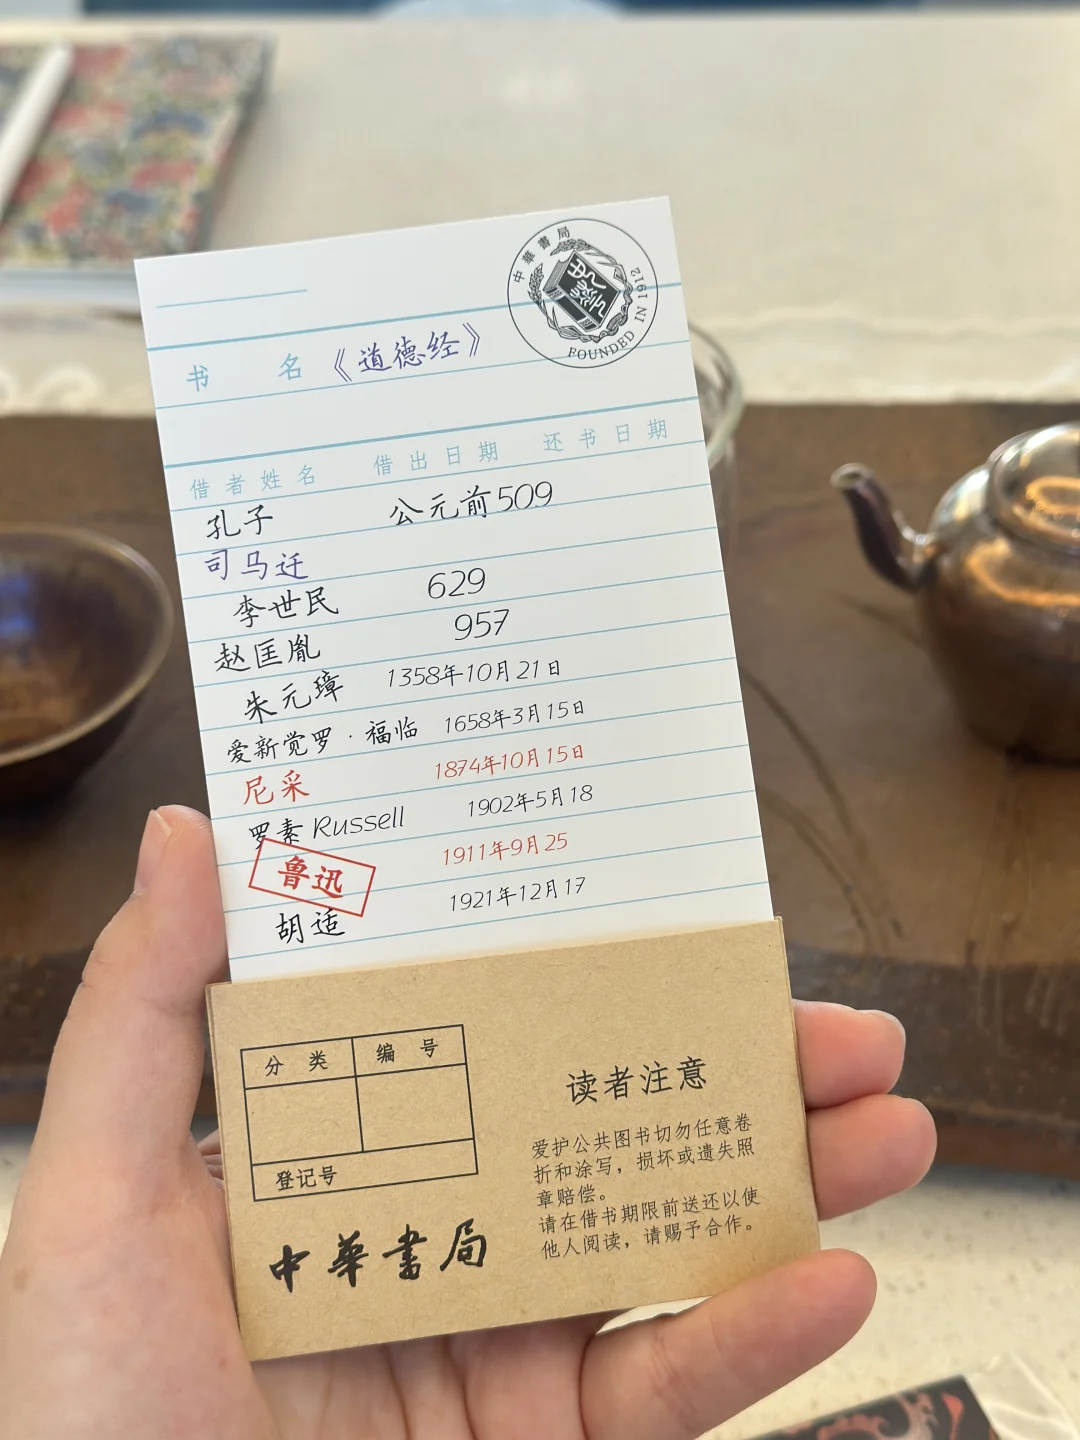 中華書局
FOUNDED IN 1912
书 名 《道德经》
借者姓名 借出日期 还书日期
孔子 公元前509
司马迁
李世民 629
赵匡胤 957
朱元璋 1358年10月21日
爱新觉罗·福临 1658年3月15日
尼采 1874年10月15日
罗素 Russell 1902年5月18
鲁迅 1911年9月25
胡适 1921年12月17
分 类 编 号
登记号
中華書局
读者注意
爱护公共图书切勿任意卷
折和涂写，损坏或遗失照
章赔偿。
请在借书期限前送还以使
他人阅读，请赐予合作。